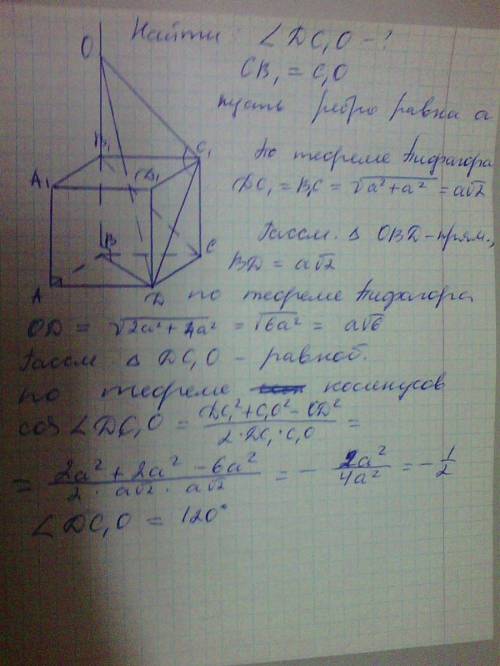 Найти: ∠DC₁O - ?
CB₁ = C₁O
пусть ребро равна a
O
B₁
C₁
A₁
D₁
B
C
A
D
По теореме Пифагора
DC₁ = B₁C = √a² + a² = a√2
Рассм. Δ OBD - прям.,
BD = a√2
по теореме Пифагора
OD = √2a² + 4a² = √6a² = a√6
Рассм Δ DC₁O - равноб.
по теореме косинусов
cos ∠DC₁O = DC₁² + C₁O² - OD² / 2 · DC₁ · C₁O =
= 2a² + 2a² - 6a² / 2 · a√2 · a√2 = - 2a² / 4a² = - 1/2
∠DC₁O = 120°